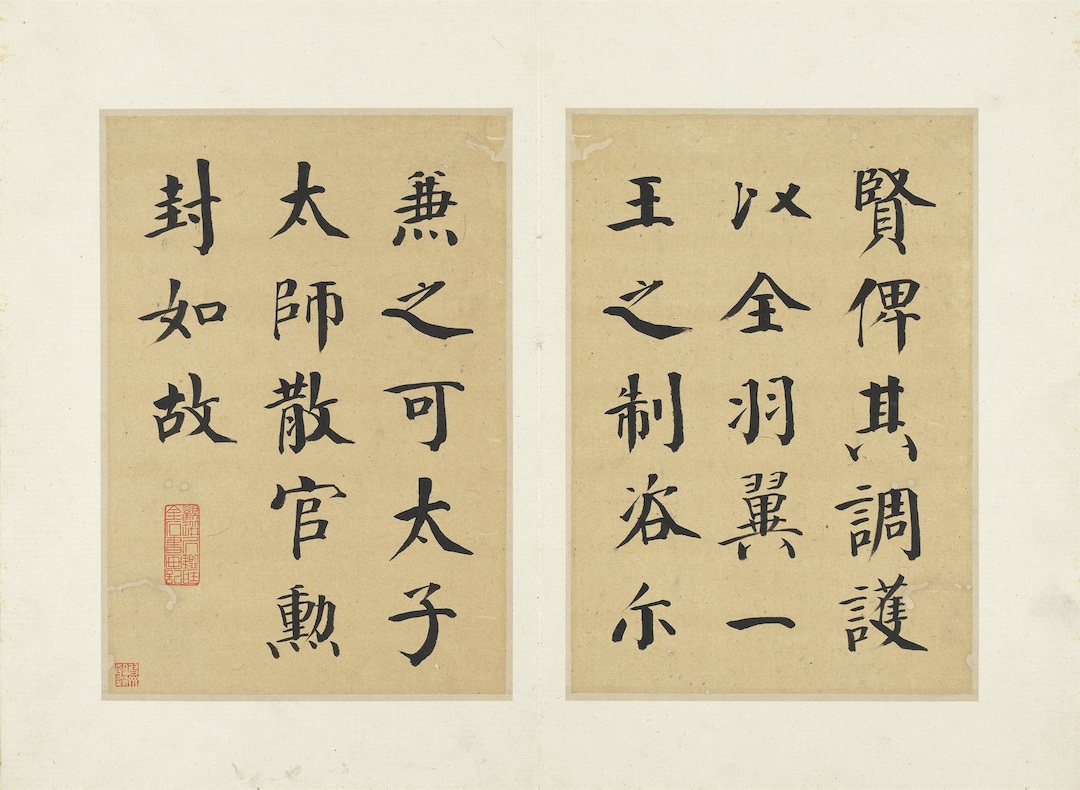 賢俾其調護
以全羽翼一
王之制咨尒
兼之可太子
太師散官勳
封如故